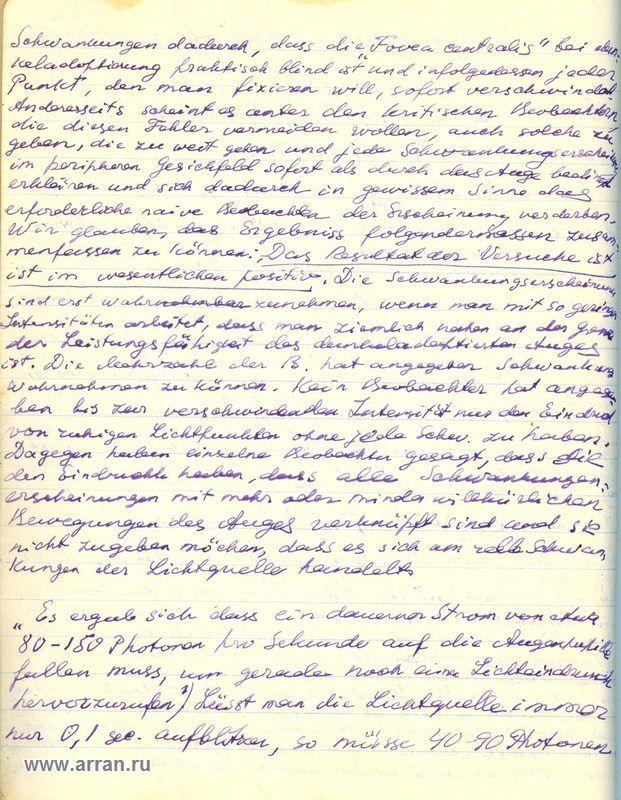 Schwankungen dadurch, dass die "Fovea centralis" bei dun-
keladaptierung praktisch blind ist" und infolgedessen jeder
Punkt, den man fixieren will, sofort verschwindet.
Andererseits scheint es unter den kritischen Beobachtern,
die diesen Fehler vermeiden wollen, auch solche zu
geben, die zu weit gehen und jede Schwankungserschein
im peripheren Gesichfeld sofort als durch das Auge bedingt
erklären und sich dadurch in gewissem Sinne das
erforderliche naive Beobachten der Erscheinung verderben.
Wir glauben, das Ergebniss folgendermassen zusam-
menfassen zu können: "Das Resultat der Versuche ist
ist im wesentlichen positiv. Die Schwankungserscheinun
sind erst wahrnehmbar zunehmen, wenn man mit so geringen
Intensitäten arbeitet, dass man ziemlich nahen an der Grenze
der Leistungsfähigkeit des dunkeladaptierten Auges
ist. Die Mehrzahl der B. hat angegeben Schwankung
wahrnehmen zu können. Kein Beobachter hat angege-
ben bis zur verschwindenden Intensität nur den Eindruck
von ruhigen Lichtpunkten ohne jede Schw. zu haben.
Dagegen haben einzelne Beobachter gesagt, dass sie
den Eindruck haben, dass alle Schwankungen-
erscheinungen mit mehr oder minder willkürlichen
Bewegungen des Auges verknüpft sind und sie
nicht zugeben möchen, dass es sich um reelle Schwan
kungen der Lichtquelle handelt.
"Es ergab sich dass ein dauernder Strom von
80-150 Photonen pro Sekunde auf die Augenpupille
fallen muss, um gerade noch einen Lichteindruck
hervorzurufen 1) Lässt man die Lichtquelle immer
nur 0,1 sec. aufblitzen, so müsse 40-90 Photonen
www.arran.ru